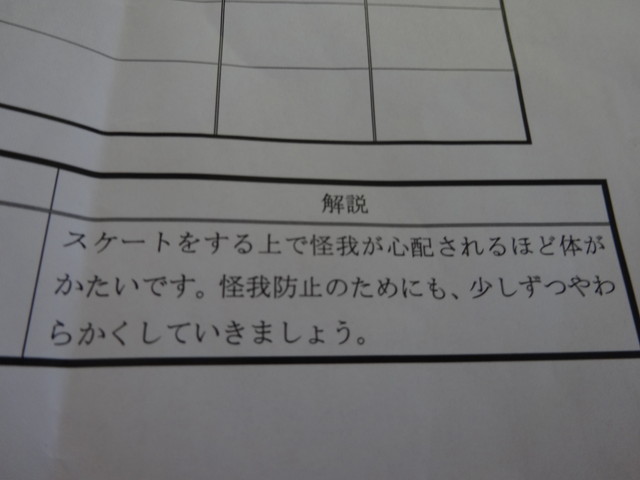 解説
スケートをする上で怪我が心配されるほど体が
かたいです。怪我防止のためにも、少しずつやわ
らかくしていきましょう。